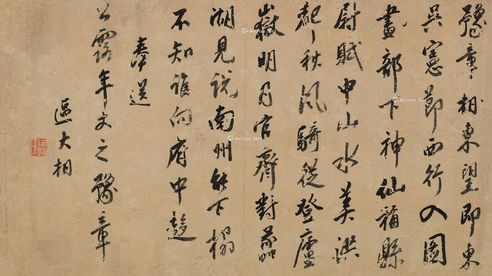 豫章相東望即東
吳憲節西行入圖
畫部下神仙稱縣
尉賦中山水美
都秋風騎從登廬
嶽明月官齋對蠡
湖見說南州能下榻
不知誰向府中趨
奉送
公露年丈之豫章
區大相